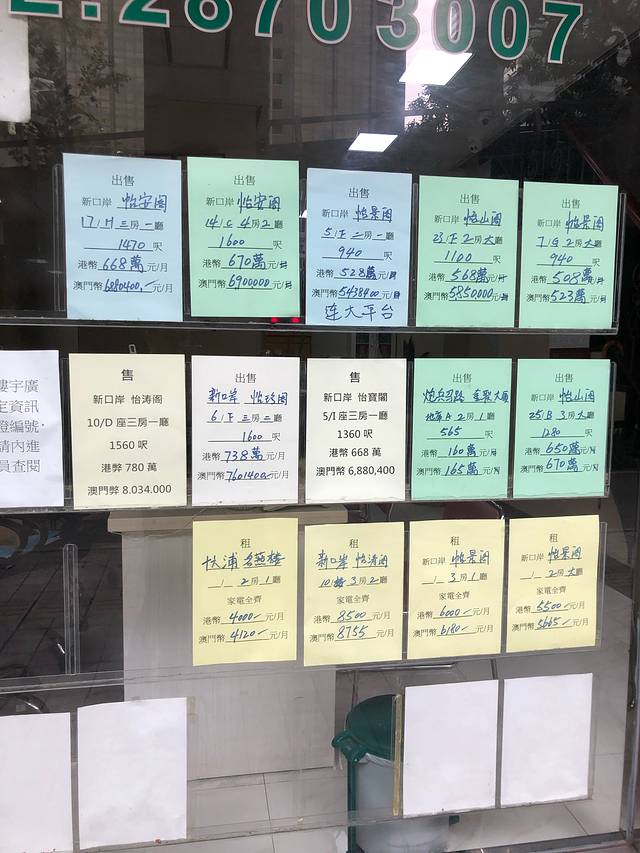 2.28703007
出售
新口岸 怡安阁
17/H 三房一廳
1470 呎
港幣 668萬 元/月
澳門幣 6880400.- 元/月
出售
新口岸 怡安阁
14/C 4房2廳
1600 呎
港幣 670萬 元/月
澳門幣 6900000 元/月
出售
新口岸 怡景阁
5/F 二房一廳
940 呎
港幣 528萬 元/月
澳門幣 5438400 元/月
连大平台
出售
新口岸 怡山阁
23/F 2房大廳
1100 呎
港幣 568萬 元/月
澳門幣 5850,000 元/月
出售
新口岸 怡景阁
7/G 2房大廳
940 呎
港幣 508萬 元/月
澳門幣 523萬 元/月
樓宇廣
定資訊
證編號,
請內進
員查閱
售
新口岸 怡涛阁
10/D 座三房一廳
1560 呎
港弊 780 萬
澳门弊 8.034.000
售
新口岸 怡珍阁
6/F 三房二廳
1600 呎
港幣 738萬 元/月
澳門幣 7601400- 元/月
售
新口岸 怡寶閣
5/I 座三房一廳
1360 呎
港幣 668 萬
澳門幣 6,880,400
出售
2房1廳
565 呎
港幣 160萬 元/月
澳門幣 165萬 元/月
出售
新口岸 怡山阁
25/B 3房大廳
1280 呎
港幣 650萬 元/月
澳門幣 670萬 元/月
租
2房1廳
家電全齊
港幣 4000- 元/月
澳門幣 4120- 元/月
租
新口岸 怡涛阁
3房2廳
家電全齊
港幣 8500 元/月
澳門幣 8755 元/月
租
新口岸 怡景阁
/ 3房1廳
家電全齊
港幣 6000- 元/月
澳門幣 6180- 元/月
租
新口岸 怡景阁
/ 2房大廳
家電全齊
港幣 5500- 元/月
澳門幣 5665- 元/月